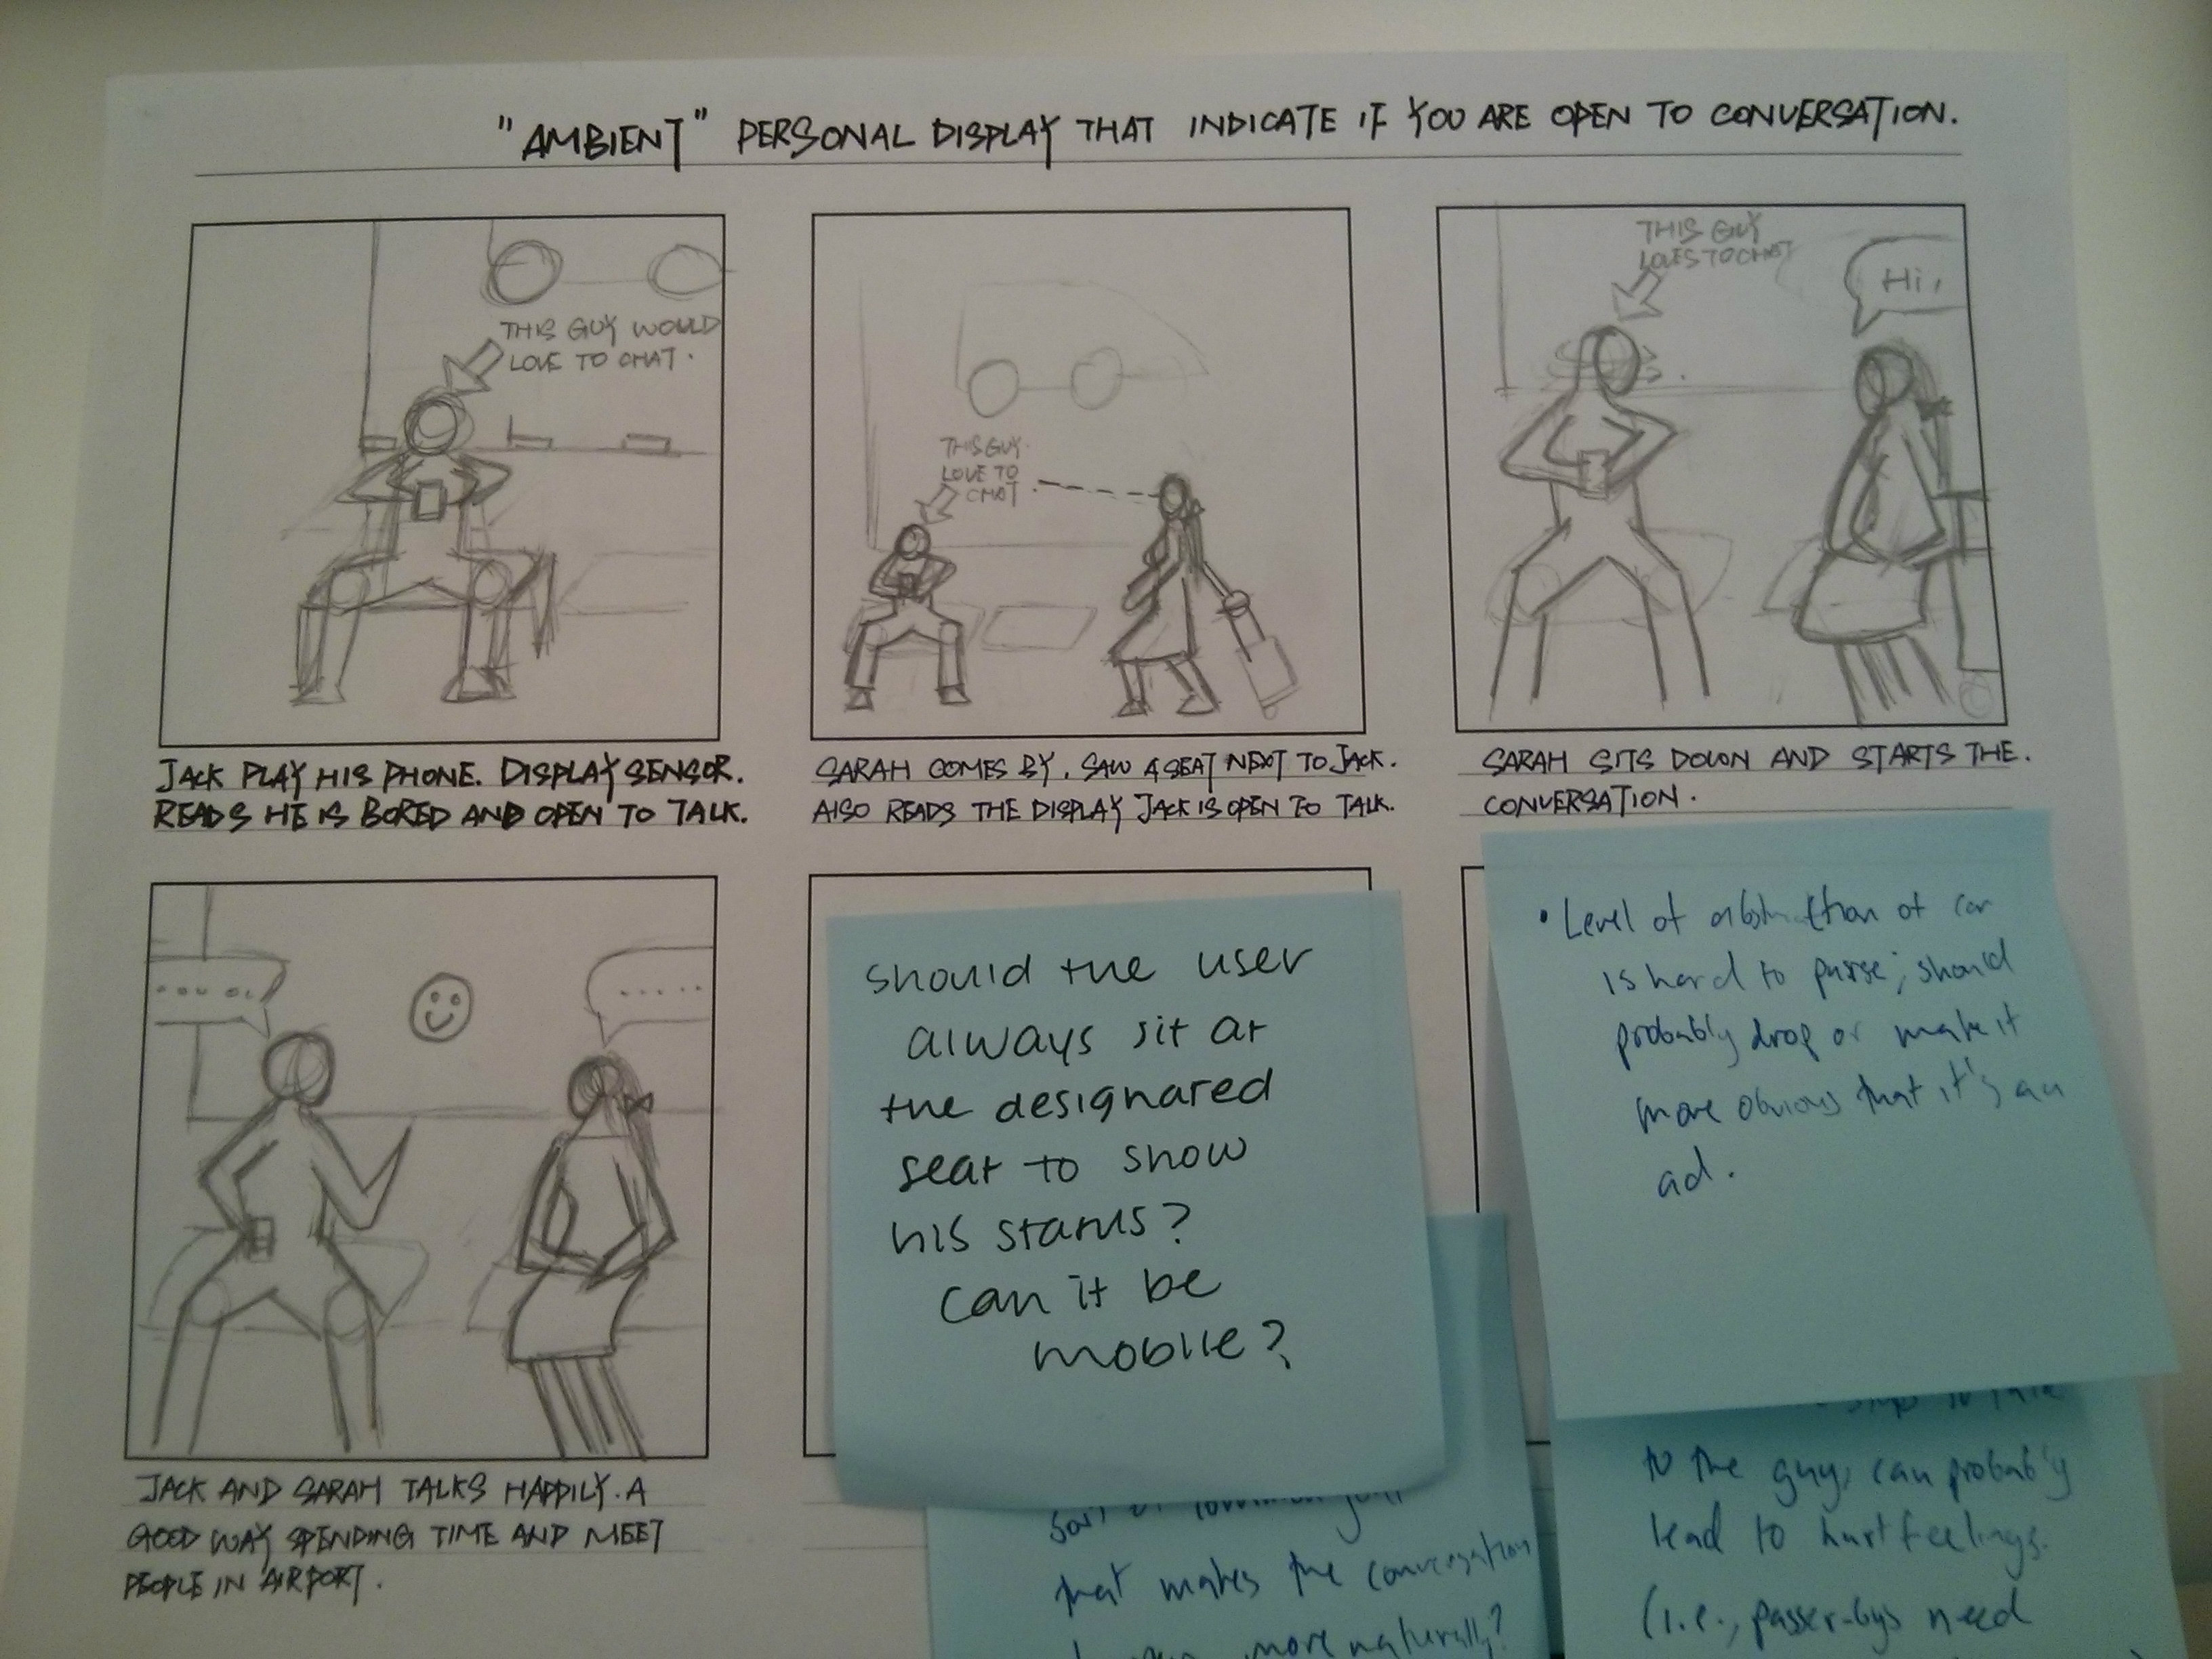 "AMBIENT" PERSONAL DISPLAY THAT INDICATE IF YOU ARE OPEN TO CONVERSATION.
THIS GUY WOULD
LOVE TO CHAT.
JACK PLAY HIS PHONE. DISPLAY SENSOR.
READS HE IS BORED AND OPEN TO TALK.
THIS GUY
LOVE TO
CHAT
SARAH COMES BY, SAW A SEAT NEXT TO JACK.
ALSO READS THE DISPLAY JACK IS OPEN TO TALK.
THIS GUY
LOVES TO CHAT
Hi,
SARAH SITS DOWN AND STARTS THE.
CONVERSATION.
JACK AND SARAH TALKS HAPPILY. A
GOOD WAY SPENDING TIME AND MEET
PEOPLE IN AIRPORT.
should the user
always sit at
the designated
seat to show
his status?
can it be
mobile?
• Level of abstraction of car
is hard to parse; should
probably drop or make it
more obvious that it's an
ad.
that makes the conversation
more naturally?
to the guy, can probably
lead to hurt feelings.
(i.e., passer-bys need